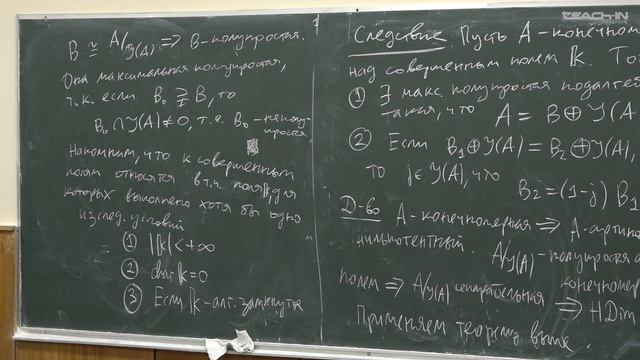 B ≅ A/J(A) ⇒ B - полупростая.
Она максимальная полупростая,
т.к. если B₀ ⊋ B, то
B₀ ∩ J(A) ≠ 0, т.е. B₀ - неполу-
простая
Напомним, что к совершенным
полям относятся в т.ч. поля 𝕜, для
которых выполнено хотя бы одно
из след. условий
① |𝕜| < +∞
② char 𝕜 = 0
③ Если 𝕜 - алг. замкнуто
Следствие. Пусть A - конечном
над совершенным полем 𝕜. То
① ∃ макс. полупростая подалге
такая, что A = B ⊕ J(A
② Если B₁ ⊕ J(A) = B₂ ⊕ J(A),
то j ∈ J(A), что
B₂ = (1-j) B₁
Д-во A - конечномерная ⇒ A - артин
нильпотентный. A/J(A) - полупростая а
полем ⇒ A/J(A) сепарабельная конечномер
⇒ HDim
Применяем теорему выше.
TEACH-IN